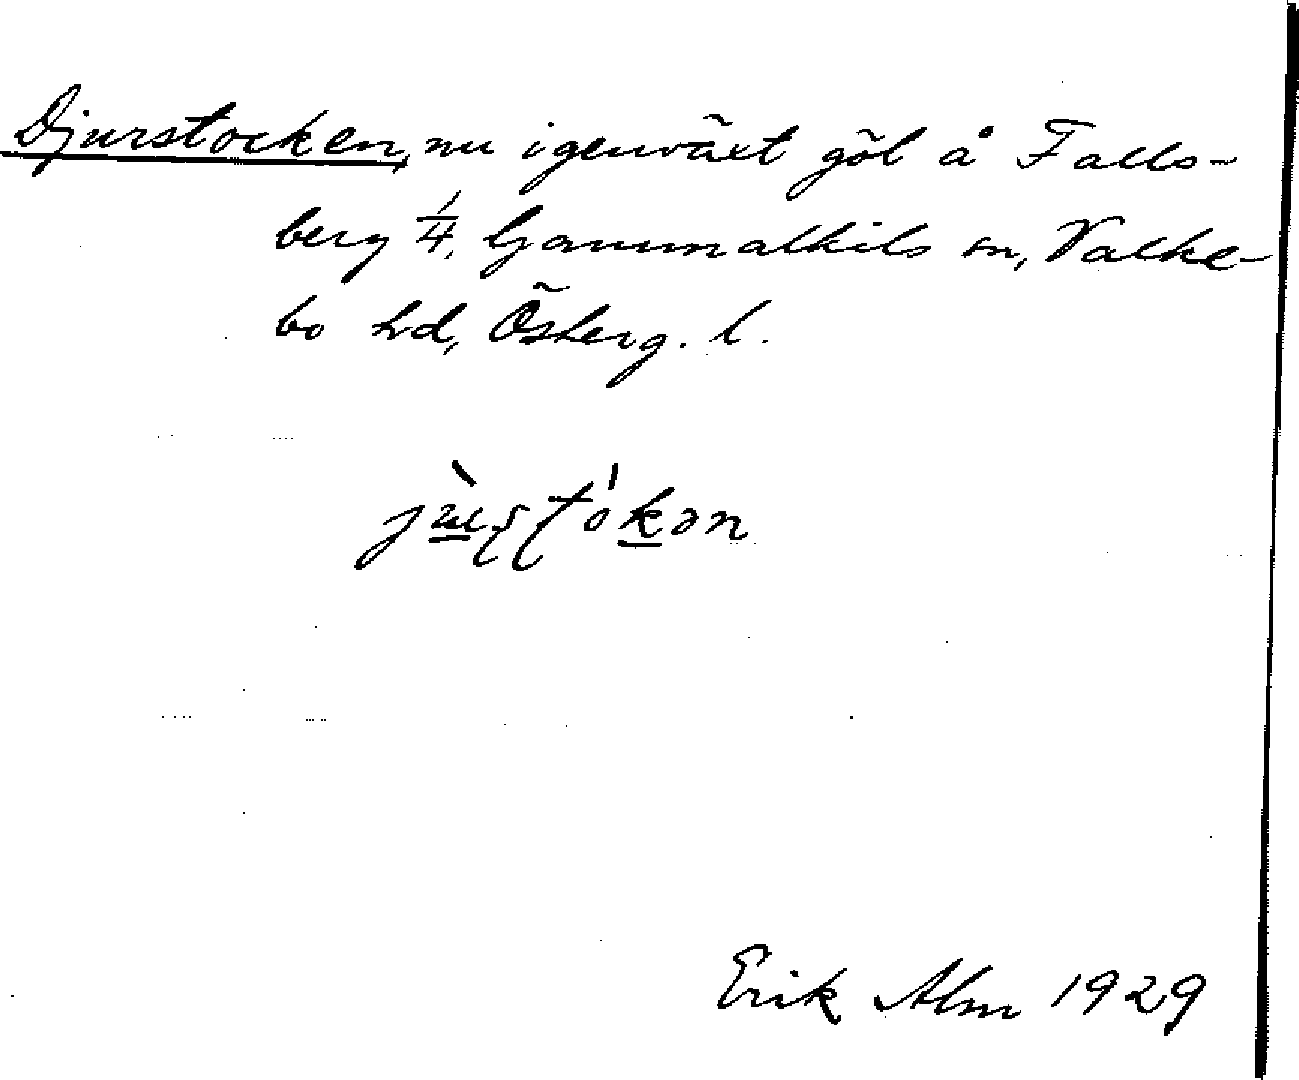 Djurstocken, nu igenväxt göl å Falls-
berg 1/4, Gammalkils sn, Valke-
bo hd, Österg. l.
Erik Alm 1929